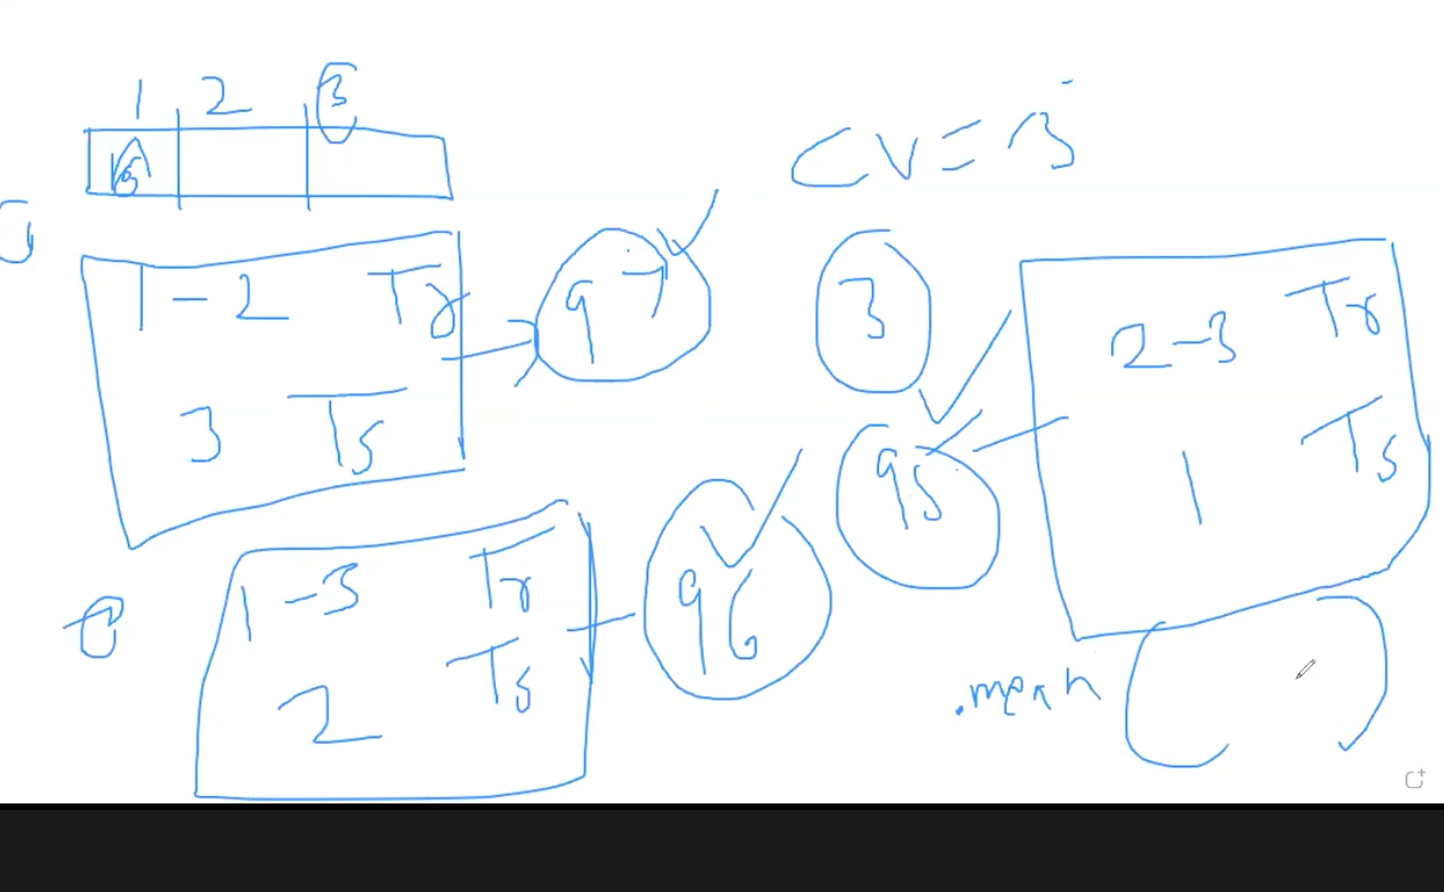 1 2 3
CV = 3
1-2 Tr
3 Ts
97
3
2-3 Tr
1 Ts
95
1-3 Tr
2 Ts
96
.mean ( )